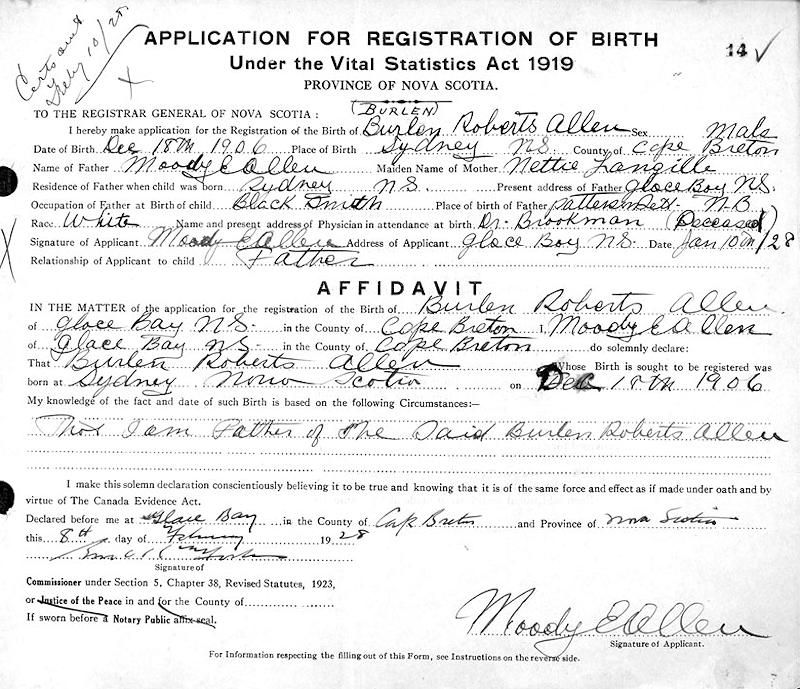 Certs sent
Feby 10/28.
X
APPLICATION FOR REGISTRATION OF BIRTH
14 ✓
Under the Vital Statistics Act 1919
PROVINCE OF NOVA SCOTIA.
(BURLEN)
TO THE REGISTRAR GENERAL OF NOVA SCOTIA :
I hereby make application for the Registration of the Birth of Burlen Roberts Allen Sex Male
Date of Birth Dec 18th 1906 Place of Birth Sydney NS County of Cape Breton
Name of Father Moody E Allen Maiden Name of Mother Nettie Langille
Residence of Father when child was born Sydney NS. Present address of Father Glace Bay NS.
Occupation of Father at Birth of child Black Smith Place of birth of Father Patterson Sett. N B
Race White Name and present address of Physician in attendance at birth Dr. Brookman (Deceased)
Signature of Applicant Moody E Allen Address of Applicant Glace Bay NS Date Jan 10th/28
Relationship of Applicant to child Father
AFFIDAVIT
IN THE MATTER of the application for the registration of the Birth of Burlen Roberts Allen.
of Glace Bay NS. in the County of Cape Breton I, Moody E Allen
of Glace Bay NS. in the County of Cape Breton do solemnly declare:
That Burlen Roberts Allen Whose Birth is sought to be registered was
born at Sydney Nova Scotia on Dec 18th 1906
My knowledge of the fact and date of such Birth is based on the following Circumstances:—
That I am Father of The Said Burlen Roberts Allen
I make this solemn declaration conscientiously believing it to be true and knowing that it is of the same force and effect as if made under oath and by
virtue of The Canada Evidence Act.
Declared before me at Glace Bay in the County of Cape Breton and Province of Nova Scotia
this 8th day of February 1928
Signature of
Commissioner under Section 5, Chapter 38, Revised Statutes, 1923,
or Justice of the Peace in and for the County of
If sworn before a Notary Public affix seal.
Moody E Allen
Signature of Applicant.
For Information respecting the filling out of this Form, see Instructions on the reverse side.